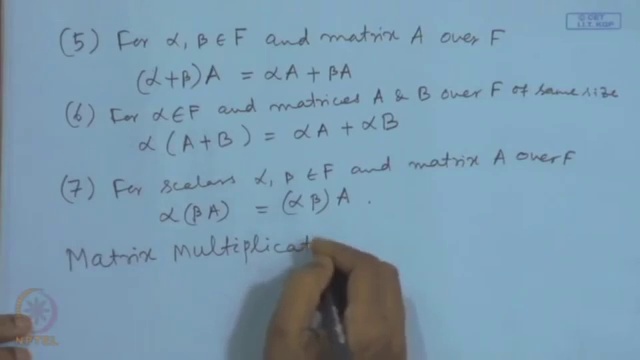 © CET
I.I.T. KGP
(5) For α, β ∈ F and matrix A over F
(α+β)A = αA + βA
(6) For α∈F and matrices A & B over F of same size
α (A+B) = αA + αB
(7) For scalars α, β ∈ F and matrix A over F
α(βA) = (αβ)A .
Matrix Multiplicat
NPTEL